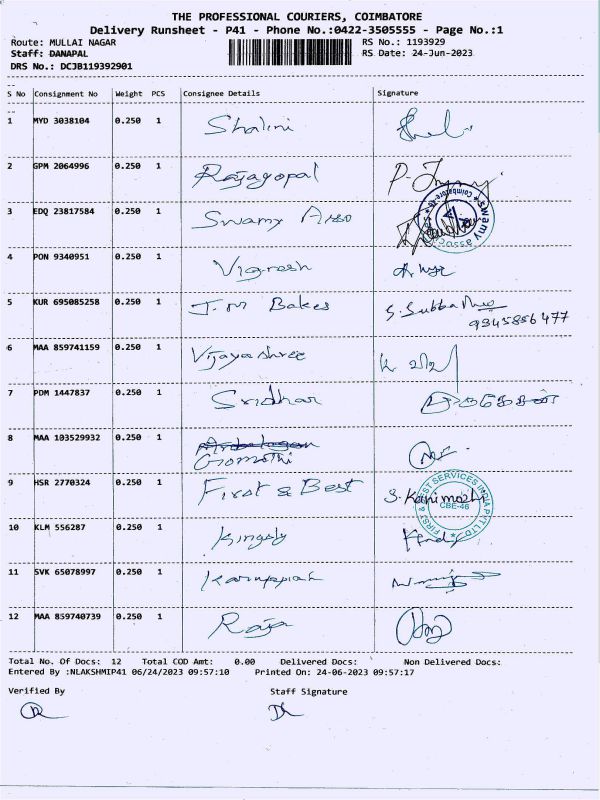 THE PROFESSIONAL COURIERS, COIMBATORE
Delivery Runsheet - P41 - Phone No.:0422-3505555 - Page No.:1
Route: MULLAI NAGAR RS No.: 1193929
Staff: DANAPAL RS Date: 24-Jun-2023
DRS No.: DCJB119392901
S No Consignment No Weight PCS Consignee Details Signature
1 MYD 3038104 0.250 1 Shalini
2 GPM 2064996 0.250 1 Rajagopal
3 EDQ 23817584 0.250 1 Swamy Asso
4 PON 9340951 0.250 1 Vignesh
5 KUR 695085258 0.250 1 J.M Bakes S. Subba
9345856477
6 MAA 859741159 0.250 1 Vijayashree
7 PDM 1447837 0.250 1 Sridhar
8 MAA 103529932 0.250 1
Gomathi
9 HSR 2770324 0.250 1 First & Best S. Kanimozhi
FIRST & BEST SERVICES INDIA PVT LTD
CBE-46
10 KLM 556287 0.250 1 Kingsly
11 SVK 65078997 0.250 1 Karuppiah
12 MAA 859740739 0.250 1 Raja
Total No. Of Docs: 12 Total COD Amt: 0.00 Delivered Docs: Non Delivered Docs:
Entered By :NLAKSHMIP41 06/24/2023 09:57:10 Printed On: 24-06-2023 09:57:17
Verified By Staff Signature